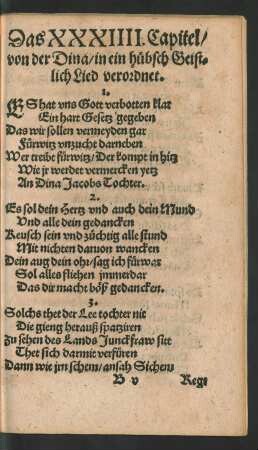 Das XXXIIII. Capitel/
von der Dina/in ein hübsch Geist-
lich Lied verordnet.
1.
ES hat vns Gott verbotten klar
Ein hart Gesetz gegeben
Das wir sollen vermeyden gar
Fürwitz vnzucht darneben
Wer treibt fürwitz/Der kompt in hitz
Wie jr werdet vermercken yetz
An Dina Jacobs Tochter.
2.
Es sol dein Hertz vnd auch dein Mund
Vnd alle dein gedancken
Keusch sein vnd züchtig alle stund
Mit nichten daruon wancken
Dein aug dein ohr/sag ich fürwar
Sol alles fliehen jmmerdar
Das dir macht böß gedancken.
3.
Solchs thet der Lee tochter nit
Die gieng herauß spatziren
Zu sehen des Lands Junckfraw sitt
Thet sich darmit verfüren
Dann wie jrn schem/ansah Sichem
B v Regt